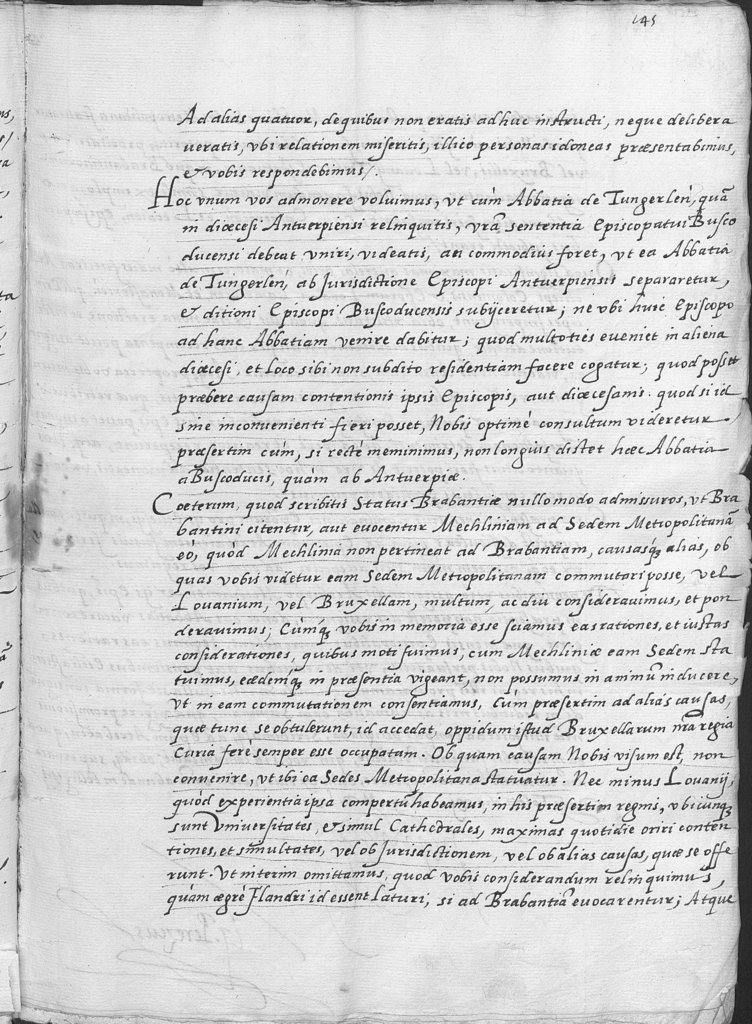 145
Ad alias quatuor, de quibus non eratis adhuc instructi, neque delibera
ueratis, vbi relationem miseritis, illico personas idoneas præsentabimus,
& vobis respondebimus/.
Hoc vnum vos admonere voluimus, vt cùm Abbatia de Tungerlen, quã
in diœcesi Antuerpiensi relinquitis, vrã sententia Episcopatui Busco
ducensi debeat vniri, videatis, an commodius foret, vt ea Abbatia
de Tungerlen, ab Jurisdictione Episcopi Antuerpiensis separaretur,
& ditioni Episcopi Buscoducensis subijceretur; ne vbi huic Episcopo
ad hanc Abbatiam venire dabitur; quod multoties eueniet in aliena
diœcesi, et loco sibi non subdito residentiam facere cogatur; quod posset
præbere causam contentionis ipsis Episcopis, aut diœcesanis. quod si id
sine inconuenienti fieri posset, Nobis optimè consultum videretur
præsertim cùm, si rectè meminimus, non longius distet hæc Abbatia
a Buscoducis, quàm ab Antuerpia.
Cœterum, quod scribitis Status Brabantiæ nullo modo admissuros, vt Bra
bantini citentur, aut euocentur Mechliniam ad Sedem Metropolitanã
eò, quòd Mechlinia non pertineat ad Brabantiam, causasq́ꝫ alias, ob
quas vobis videtur eam Sedem Metropolitanam commutari posse, vel
Louanium, vel Bruxellam, multum, ac diu considerauimus, et pon
derauimus; Cùmq́ꝫ vobis in memoria esse sciamus eas rationes, et iustas
considerationes, quibus moti fuimus, cum Mechliniæ eam Sedem sta
tuimus, eædemq́ꝫ in præsentia vigeant, non possumus in animũ inducere,
vt in eam commutationem consentiamus, Cum præsertim ad alias causas,
quæ tunc se obtulerunt, id accedat, oppidum istud Bruxellarum nrã regia
Curia ferè semper esse occupatam. Ob quam causam Nobis visum est, non
conuenire, vt ibi ea Sedes Metropolitana statuatur. Nec minus Louanij,
quòd experientia ipsa compertũ habeamus, in his præsertim regnis, vbicunqꝫ
sunt Vniuersitates, & simul Cathedrales, maximas quotidie oriri conten
tiones, et simultates, vel ob Jurisdictionem, vel ob alias causas, quæ se offe
runt. Vt interim omittamus, quod vobis considerandum relinquimus,
quàm ægrè Flandri id essent laturi, si ad Brabantiã euocarentur; Atque